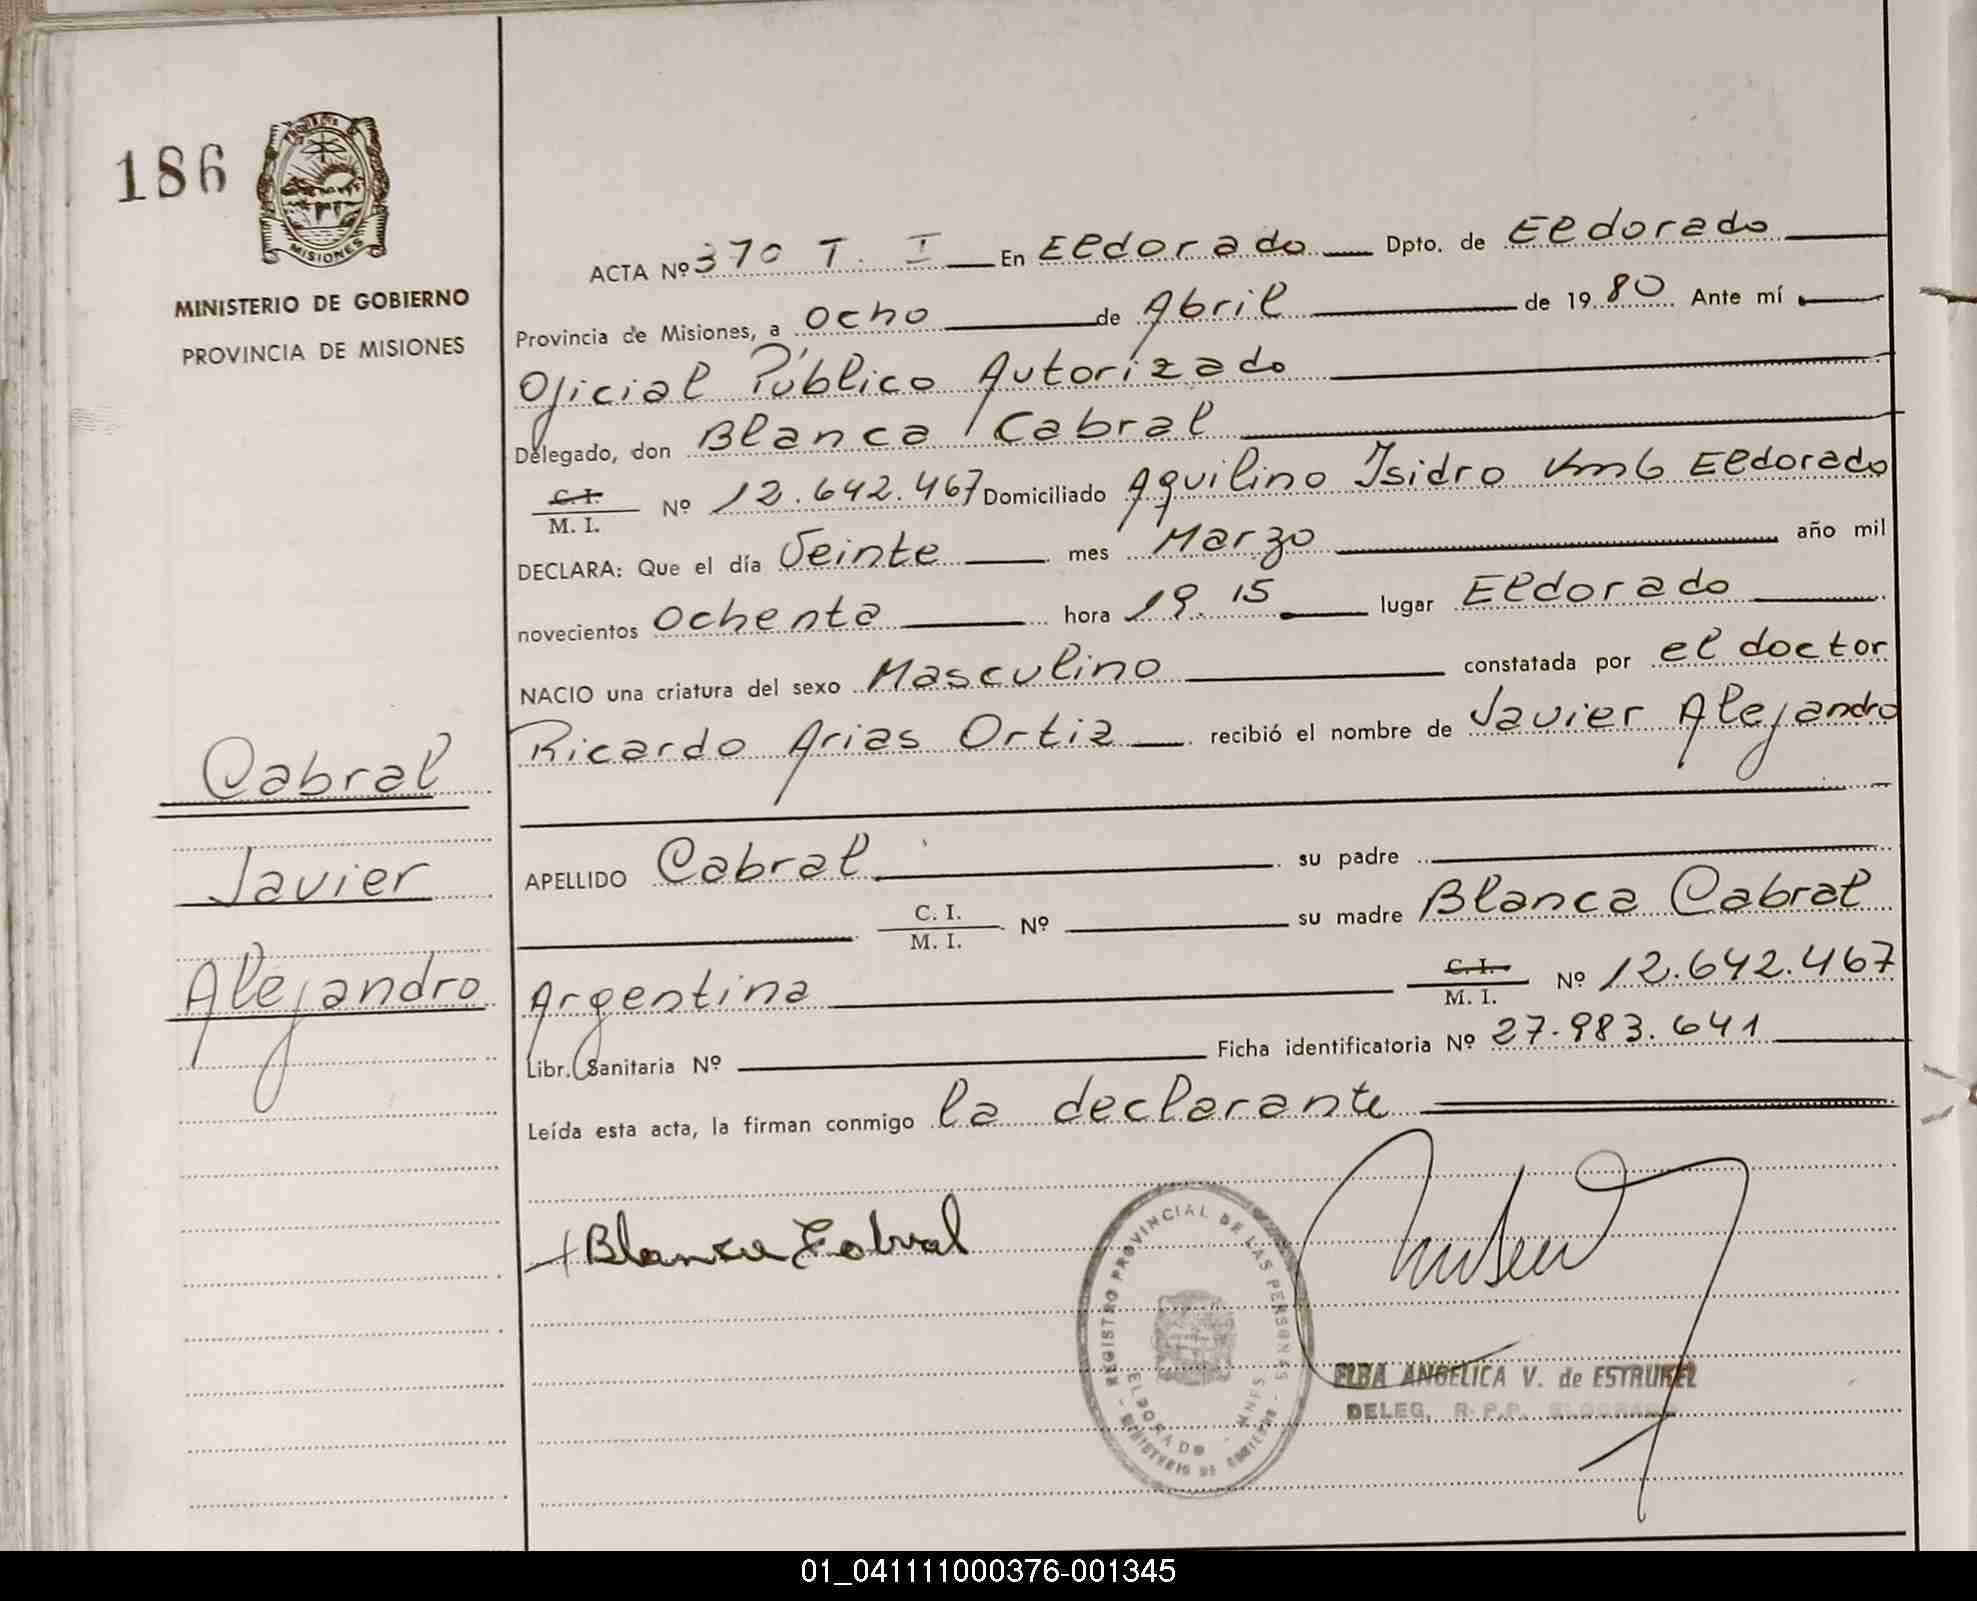 186
MISIONES
MINISTERIO DE GOBIERNO
PROVINCIA DE MISIONES
Cabral
Javier
Alejandro
ACTA Nº 370 T. I En Eldorado Dpto. de Eldorado
Provincia de Misiones, a Ocho de Abril de 1980 Ante mí
Oficial Público Autorizado
Delegado, don Blanca Cabral
C. I. / M. I. Nº 12.642.467 Domiciliado Aquilino Isidro Km6 Eldorado
DECLARA: Que el día Veinte mes Marzo año mil
novecientos Ochenta hora 19.15 lugar Eldorado
NACIO una criatura del sexo Masculino constatada por el doctor
Ricardo Arias Ortiz recibió el nombre de Javier Alejandro
APELLIDO Cabral su padre
C. I. / M. I. Nº su madre Blanca Cabral
Argentina C. I. / M. I. Nº 12.642.467
Libr. Sanitaria Nº Ficha identificatoria Nº 27.983.641
Leída esta acta, la firman conmigo la declarante
Blanca Cabral
REGISTRO PROVINCIAL DE LAS PERSONAS
ELDORADO - MNES.
MINISTERIO DE GOBIERNO
ELBA ANGELICA V. de ESTRUBEL
DELEG. R.P.P. ELDORADO
01_041111000376-001345